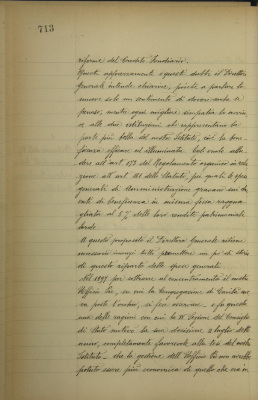 713
riforma del Credito Fondiario.
Questi apprezzamenti e questi dubbi il Direttore
Generale intende chiarire, poichè a parlare lo
muove solo un sentimento di dovere
mentre ogni migliore simpatia lo avvin-
ce alle due istituzioni che rappresentano la
parte più bella del nostro Istituto, cioè la bene-
ficenza efficace ed illuminata. Così vuole allu-
dere all'art. 173 del Regolamento organico in rela-
zione all'art. dello Statuto, pei quali le spese
generali di Amministrazione gravano sui
di beneficenza in misura fissa, raggua-
gliata al 5% delle loro rendite patrimoniali
lorde.
A questo proposito il Direttore Generale ritiene
necessario innanzi tutto premettere un po' di storia
di questo riparto delle spese generali.
Nel 1899 per ottenere il concentramento il nostro
Ufficio Pio, su cui la Congregazione di Carità ave-
va posto l'occhio, si fece osservare, e fu questa
una delle ragioni con cui la IV Sezione del Consiglio
di Stato motivò la sua decisione 2 luglio detto
anno, completamente favorevole alla tesi del nostro
Istituto - che la gestione dell'Ufficio Pio non avrebbe
potuto essere più economica di quello che era in